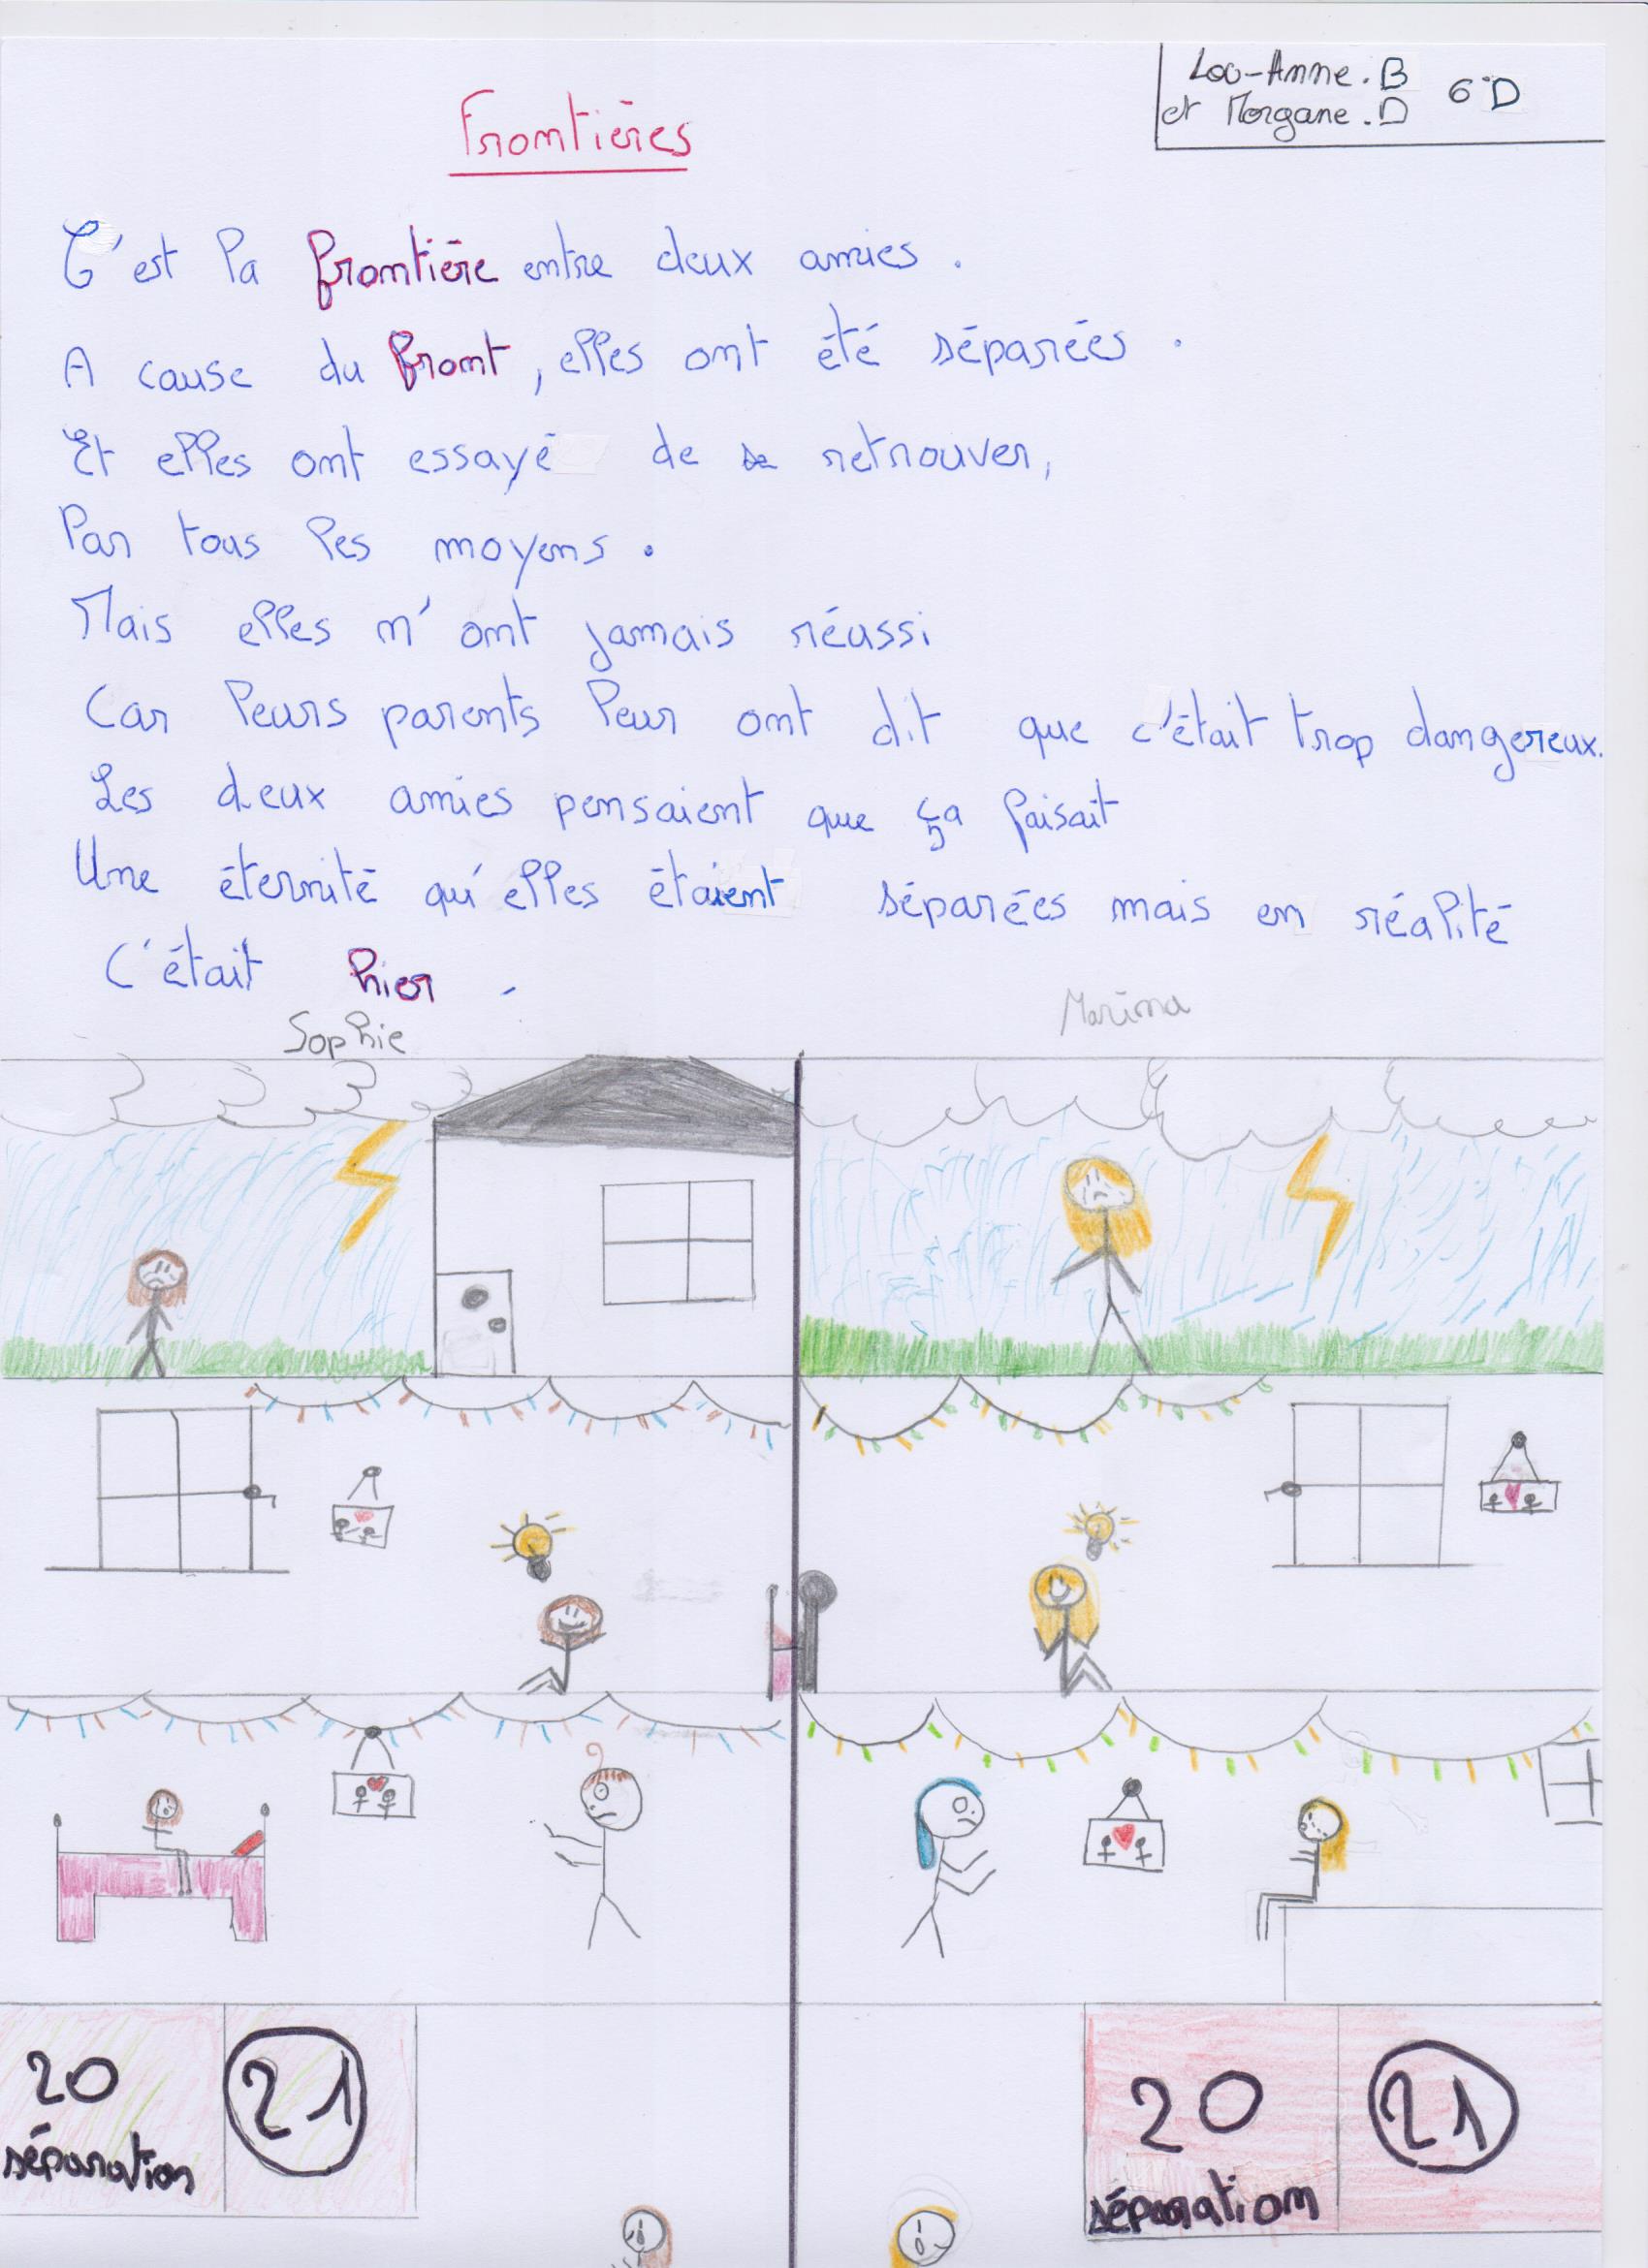 Lou-Anne.B
et Morgane.D 6°D
Frontières
C'est la frontière entre deux amies.
A cause du front, elles ont été séparées.
Et elles ont essayé de se retrouver,
Par tous les moyens.
Mais elles n'ont jamais réussi
Car leurs parents leur ont dit que c'était trop dangereux.
Les deux amies pensaient que ça faisait
Une éternité qu'elles étaient séparées mais en réalité
C'était hier.
Sophie Marina
20 21 20 21
séparation séparation